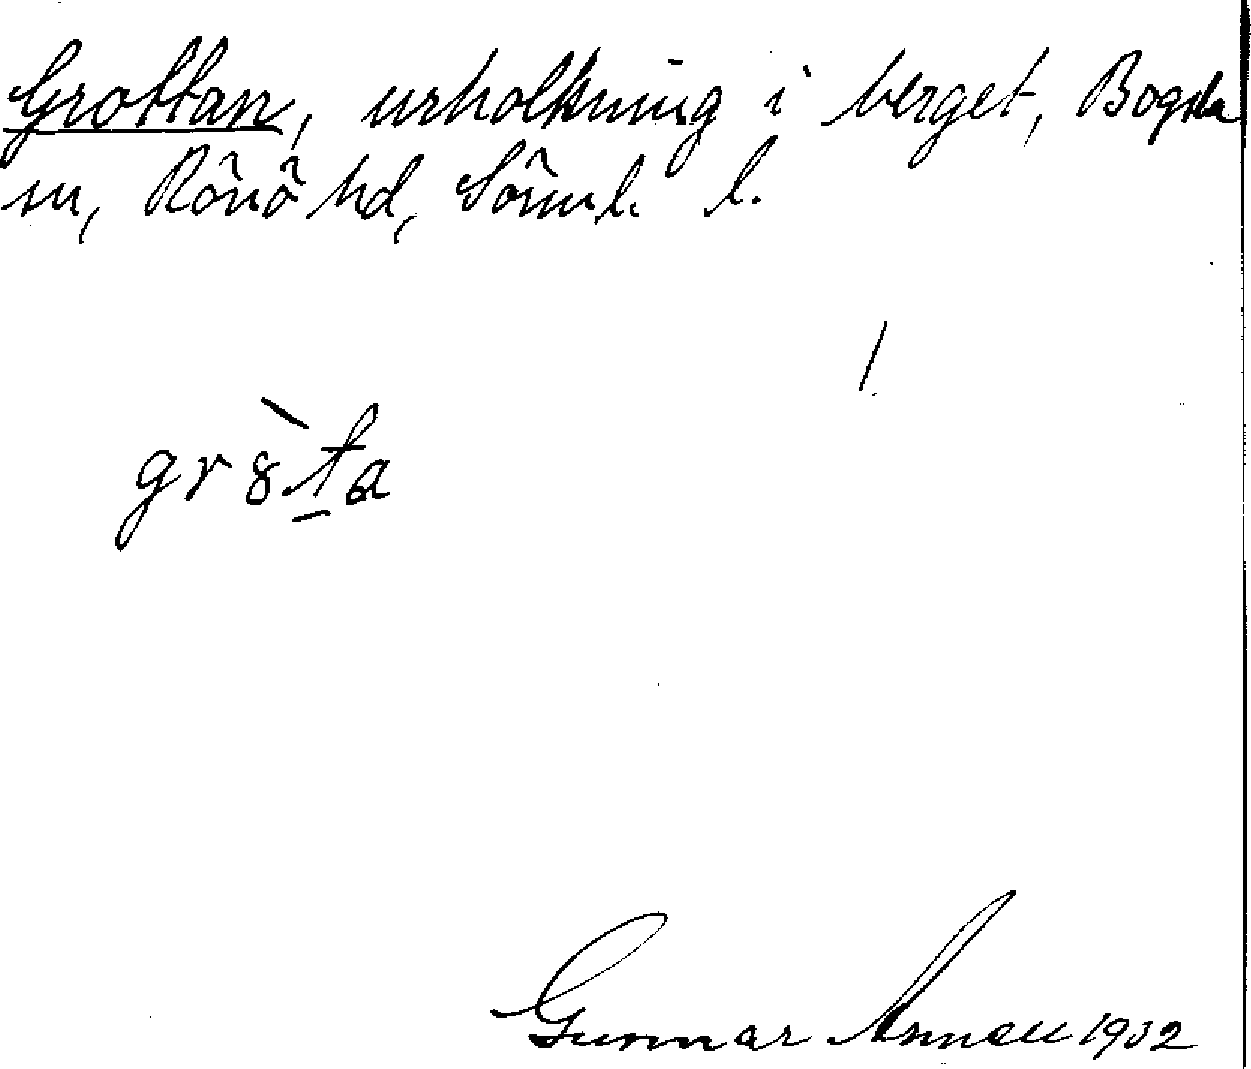 Grottan, urholkning i berget, Bogsta
sn, Rönö hd, Sörml. l.
grò̀ta
Gunnar Annell 1932